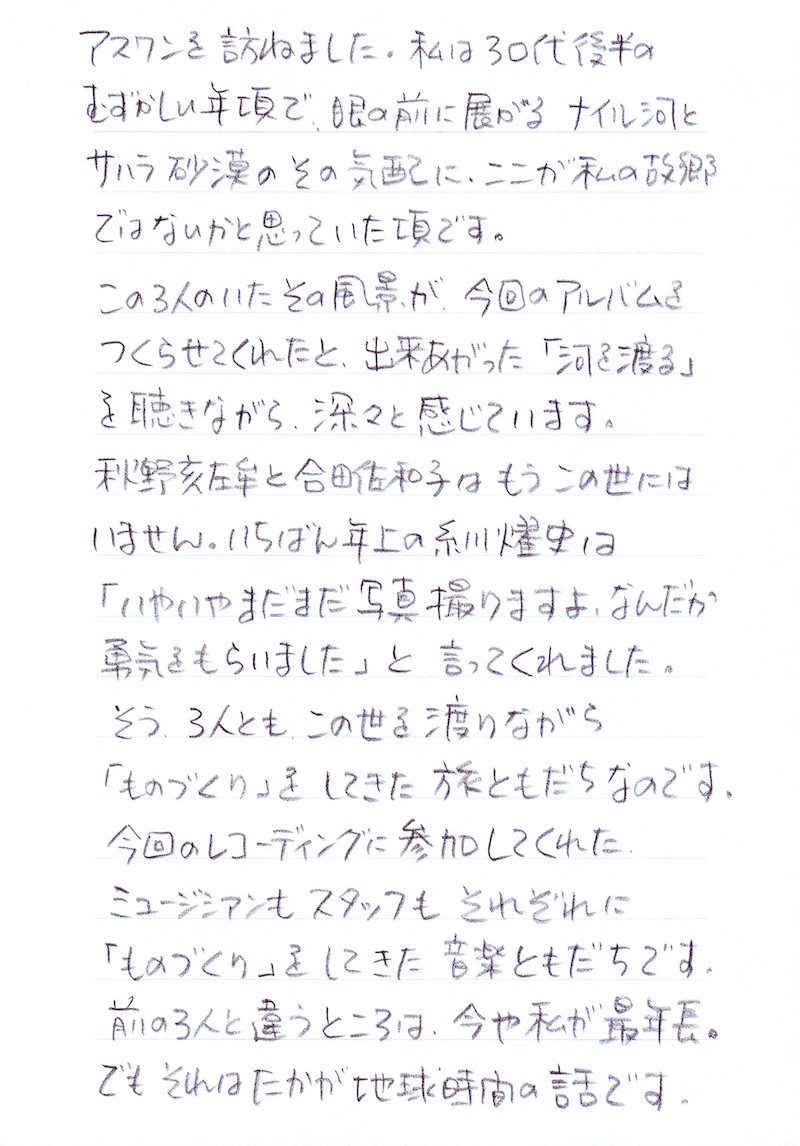 アスワンを訪ねました。私は30代後半の
むずかしい年頃で、眼の前に展がる ナイル河と
サハラ砂漠のその気配に、ここが私の故郷
ではないかと思っていた頃です。
この3人のいたその風景が、今回のアルバムを
つくらせてくれたと、出来あがった「河を渡る」
を聴きながら、深々と感じています。
秋野亥左牟と合田佐和子はもうこの世には
いません。いちばん年上の糸川燿史は
「いやいやまだまだ写真撮りますよ、なんだか
勇気をもらいました」と言ってくれました。
そう、3人とも、この世を渡りながら
「ものづくり」をしてきた旅ともだちなのです。
今回のレコーディングに参加してくれた、
ミュージシャンもスタッフもそれぞれに
「ものづくり」をしてきた音楽ともだちです。
前の3人と違うところは、今や私が最年長。
でもそれはたかが地球時間の話です。